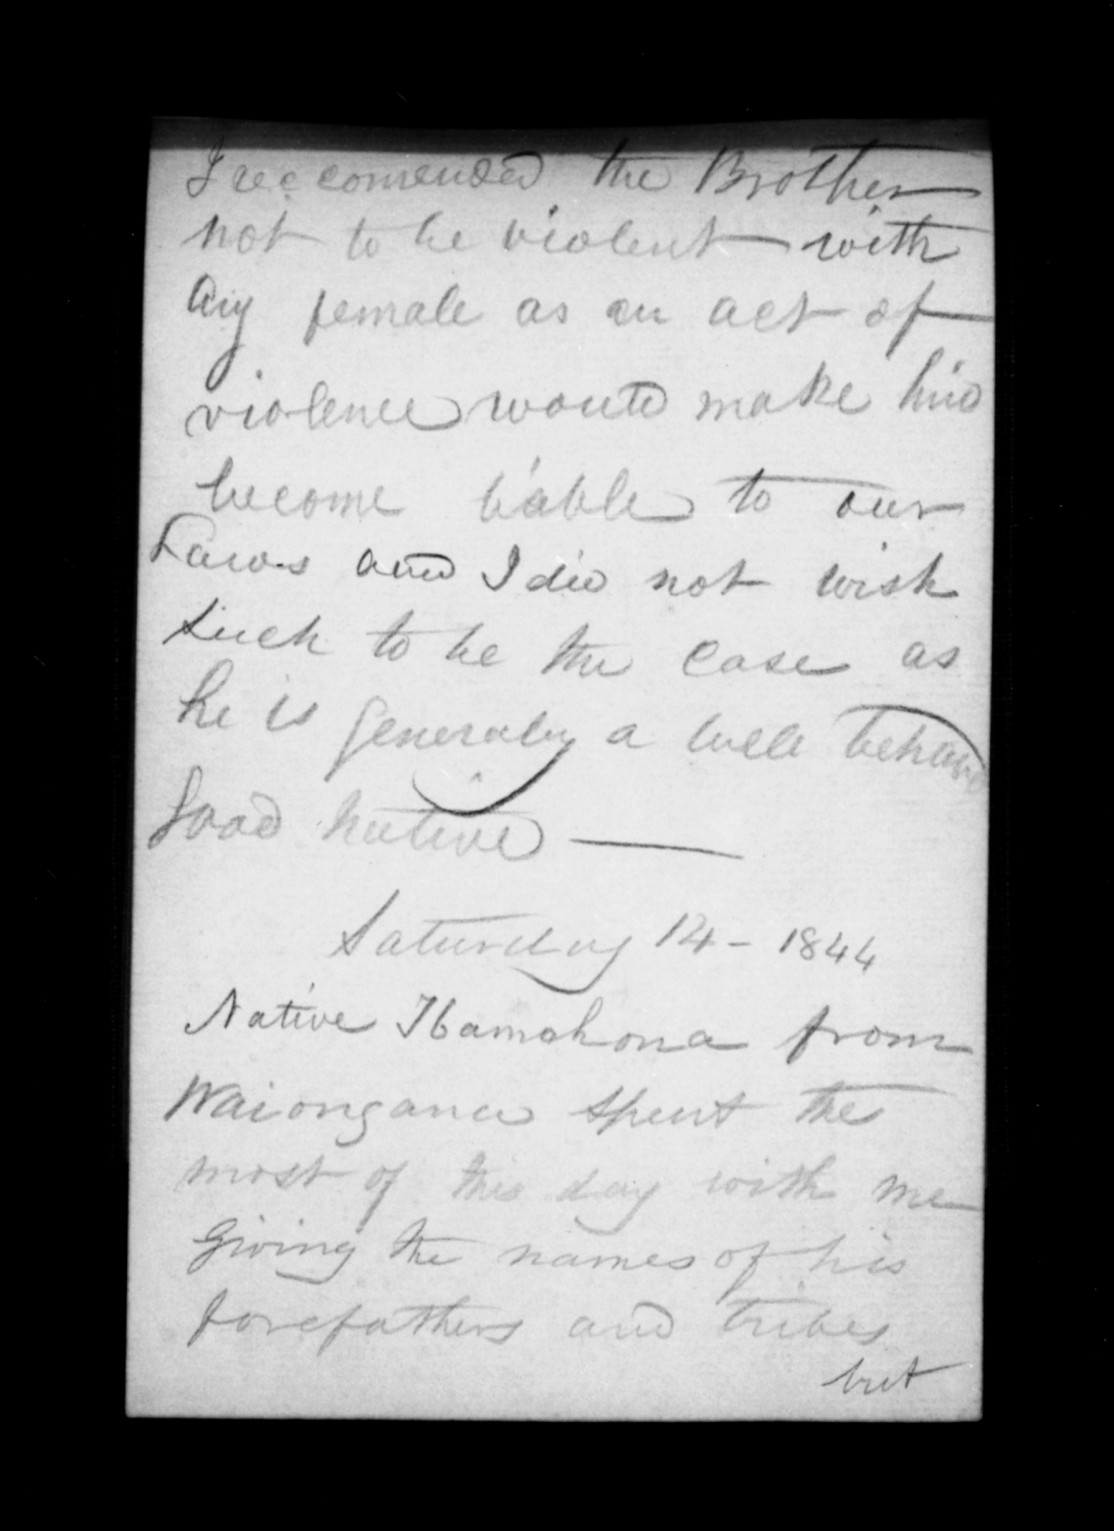 I reccomended the Brother
not to be violent with
any female as an act of
violence would make him
become liable to our
Laws and I did not wish
such to be the case as
he is generaly a well behaved
good native —
Saturday 14 - 1844
Native Ibamohona from
Waiongana spent the
most of this day with me
giving the names of his
forefathers and tribes
but